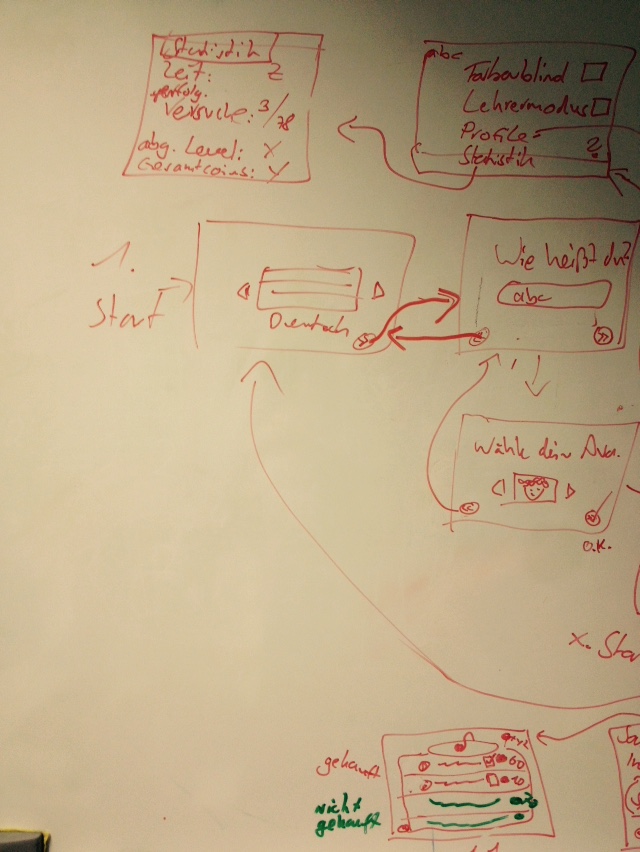 Statistik
Zeit: Z
erfolg.
Versuche: 3/78
abg. Level: X
Gesamtcoins: Y
abc
Farbenblind
Lehrermodus
Profile
Statistik
1.
Start
Deutsch
>>
Wie heißt du?
abc
<<
>>
Wähle dein Ava.
<<
>>
O.K.
X. Star
gekauft
nicht
gekauft